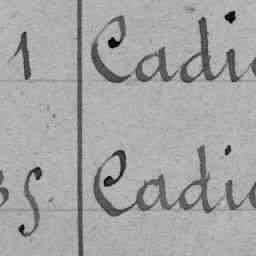 1 Cadi
35 Cadi